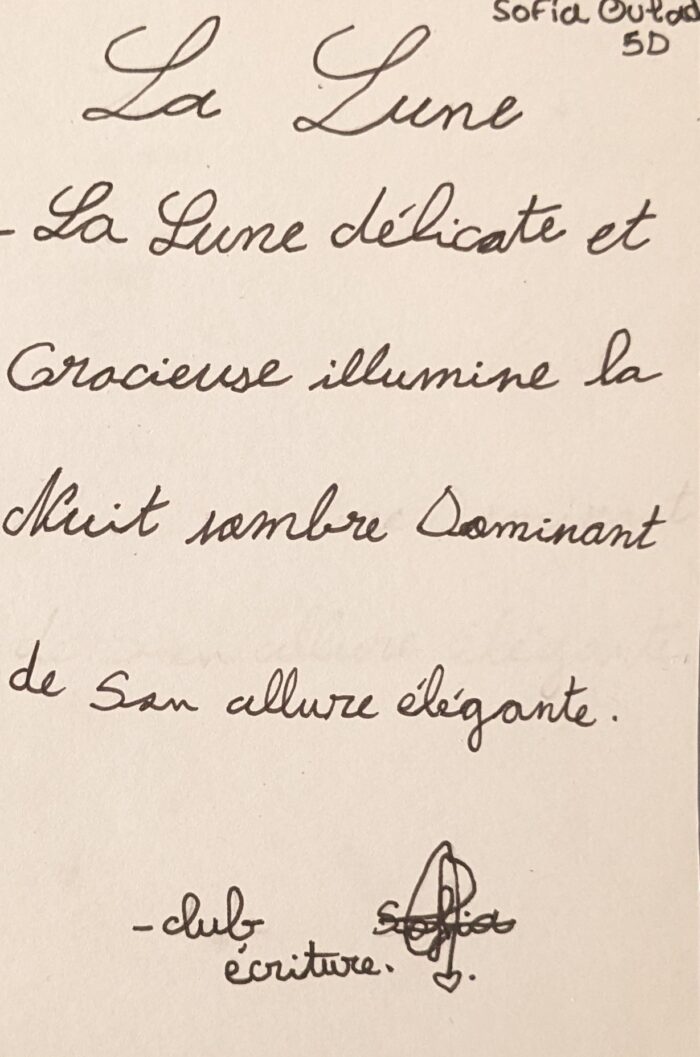 Sofia Oulad
5D
La Lune
- La Lune délicate et
Gracieuse illumine la
Nuit sombre Dominant
de Son allure élégante.
- club
écriture.
Sofia